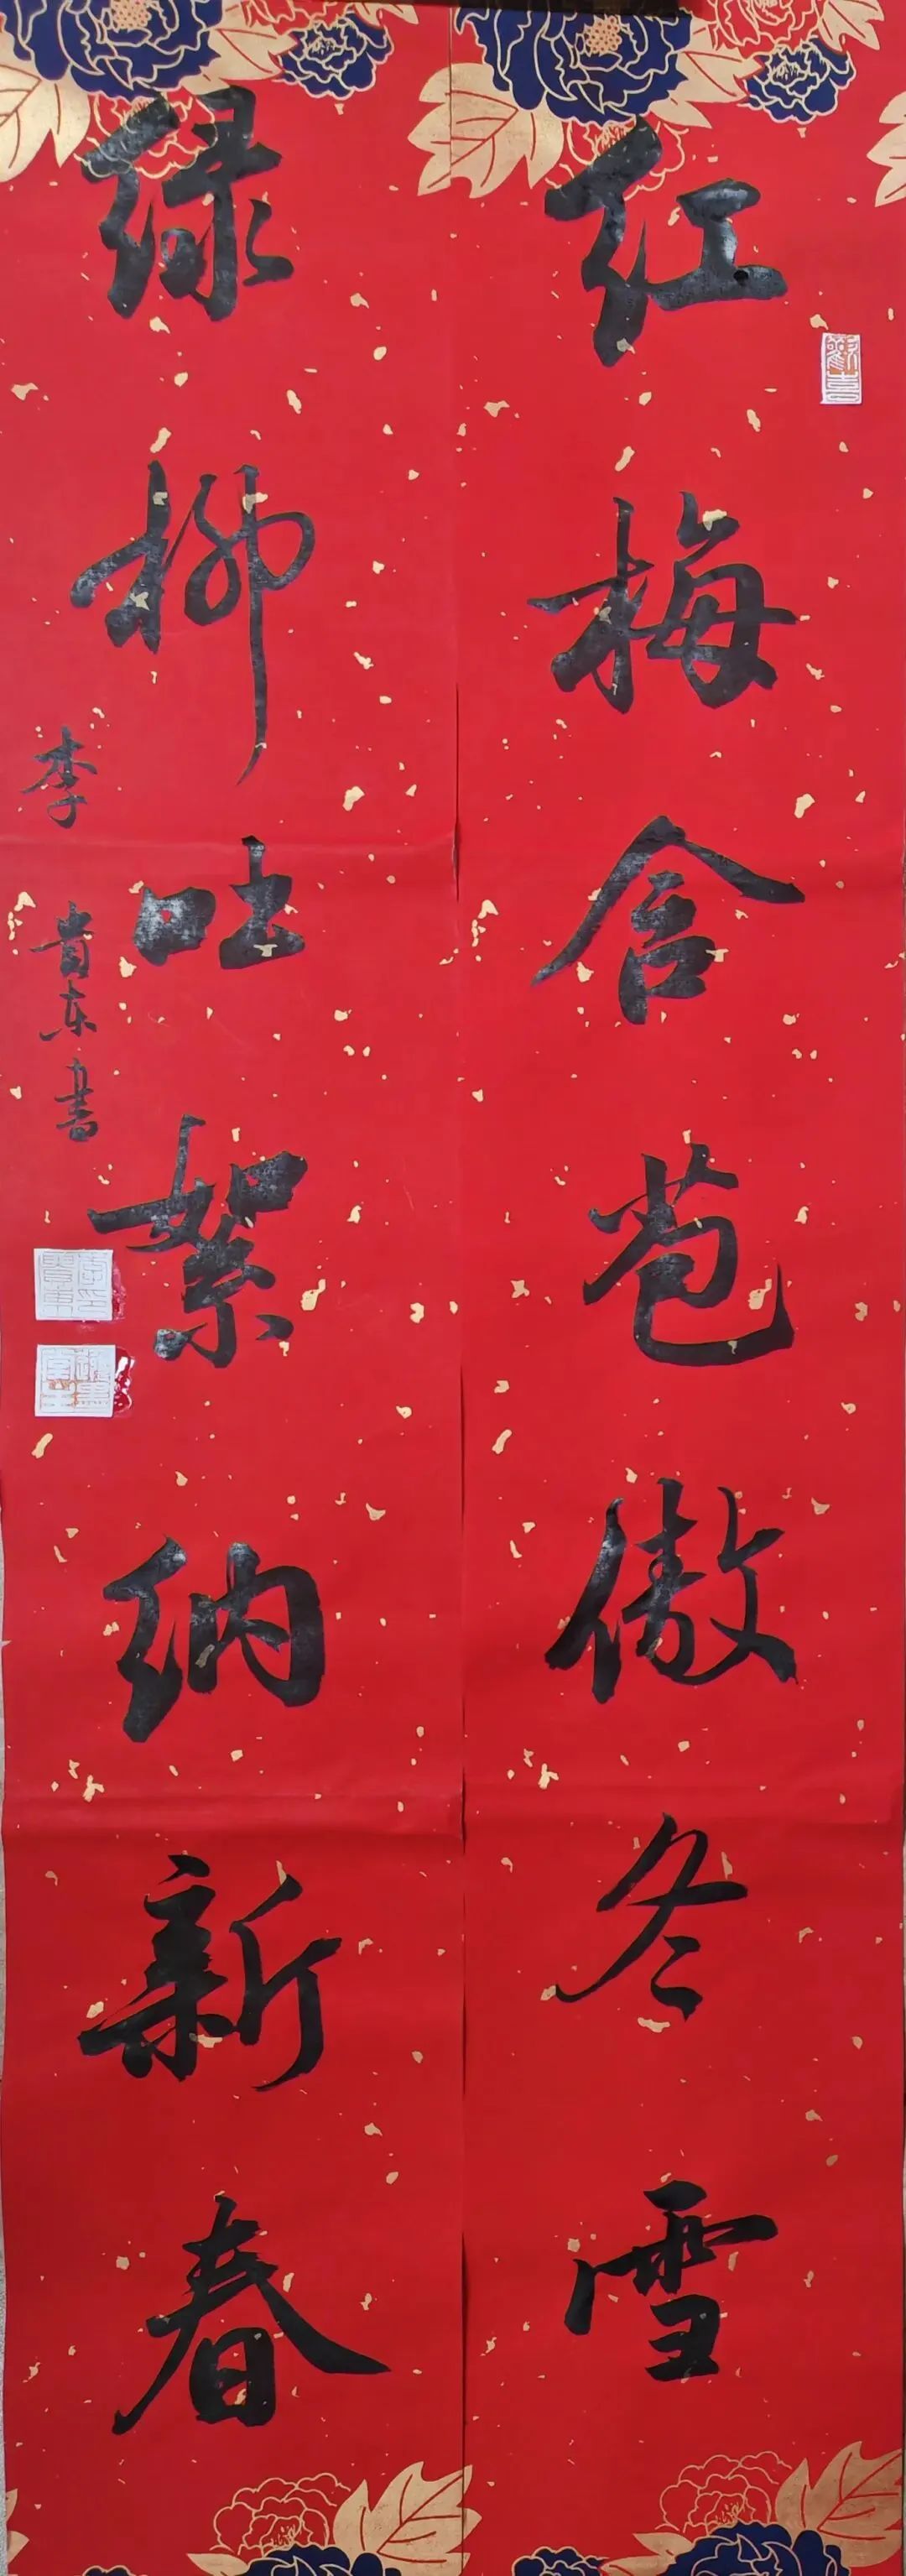 红梅含苞傲冬雪
绿柳吐絮纳新春
李贵东书